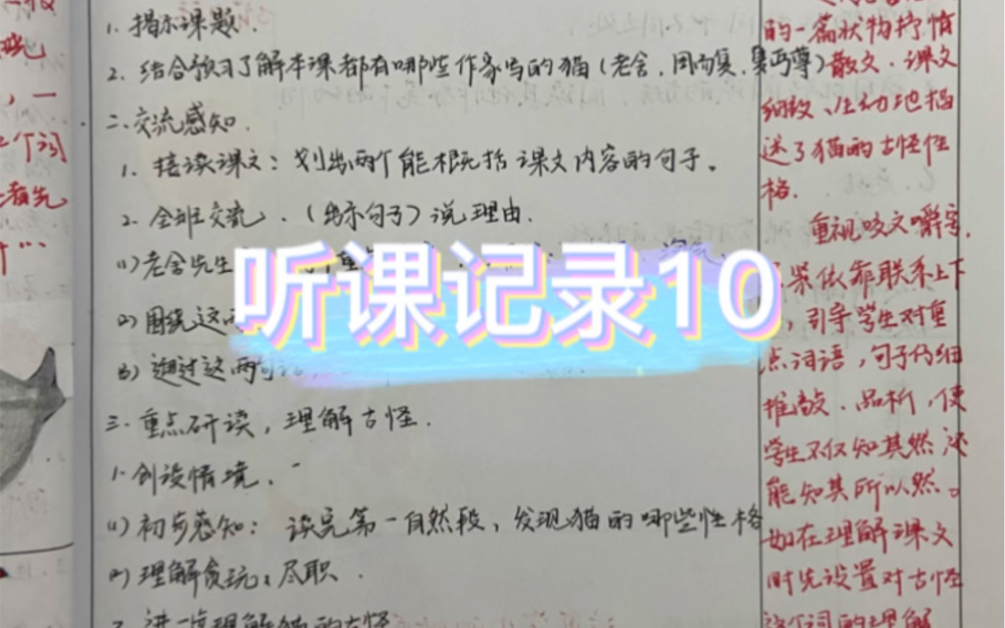 1. 揭示课题.
2. 结合预习了解本课都有哪些作家写的猫(老舍,周而复,夏丏尊)
二.交流感知.
1. 接读课文:划出两个能概括课文内容的句子。
2. 全班交流.(出示句子)说理由.
(1)老舍先生
(2)围绕这两
(3)通过这两句
三.重点研读,理解古怪.
1.创设情境.
(1)初步感知:读完第一自然段,发现猫的哪些性格
(2)理解贪玩、尽职.
2.进一步理解猫的古怪
听课记录10
的一篇状物抒情
散文.课文
细致、生动地描
述了猫的古怪性
格.
重视咬文嚼字.
紧依靠联系上下
,引导学生对重
点词语,句子仔细
推敲、品析,使
学生不仅知其然还
能知其所以然。
如在理解课文
时先设置对古怪
这个词的理解
个词